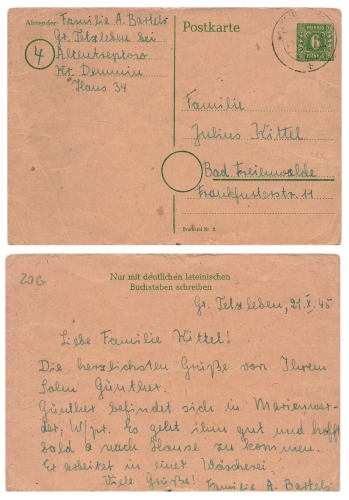 Absender: Familie A. Bartels
Gr. Tetzleben bei
4 Altentreptow
Kr. Demmin
Haus 34
Postkarte
6
Familie
Julius Kittel
Bad Freienwalde
Frankfurterstr. 11
20G
Nur mit deutlichen lateinischen
Buchstaben schreiben
Gr. Tetzleben, 21.X.45
Liebe Familie Kittel!
Die herzlichsten Grüße von Ihrem
Sohn Günther.
Günther befindet sich in Marienwer-
der, W/pr. Es geht ihm gut und hofft
bald nach Hause zu kommen.
Er arbeitet in einer Wäscherei.
Viele Grüße! Familie A. Bartels